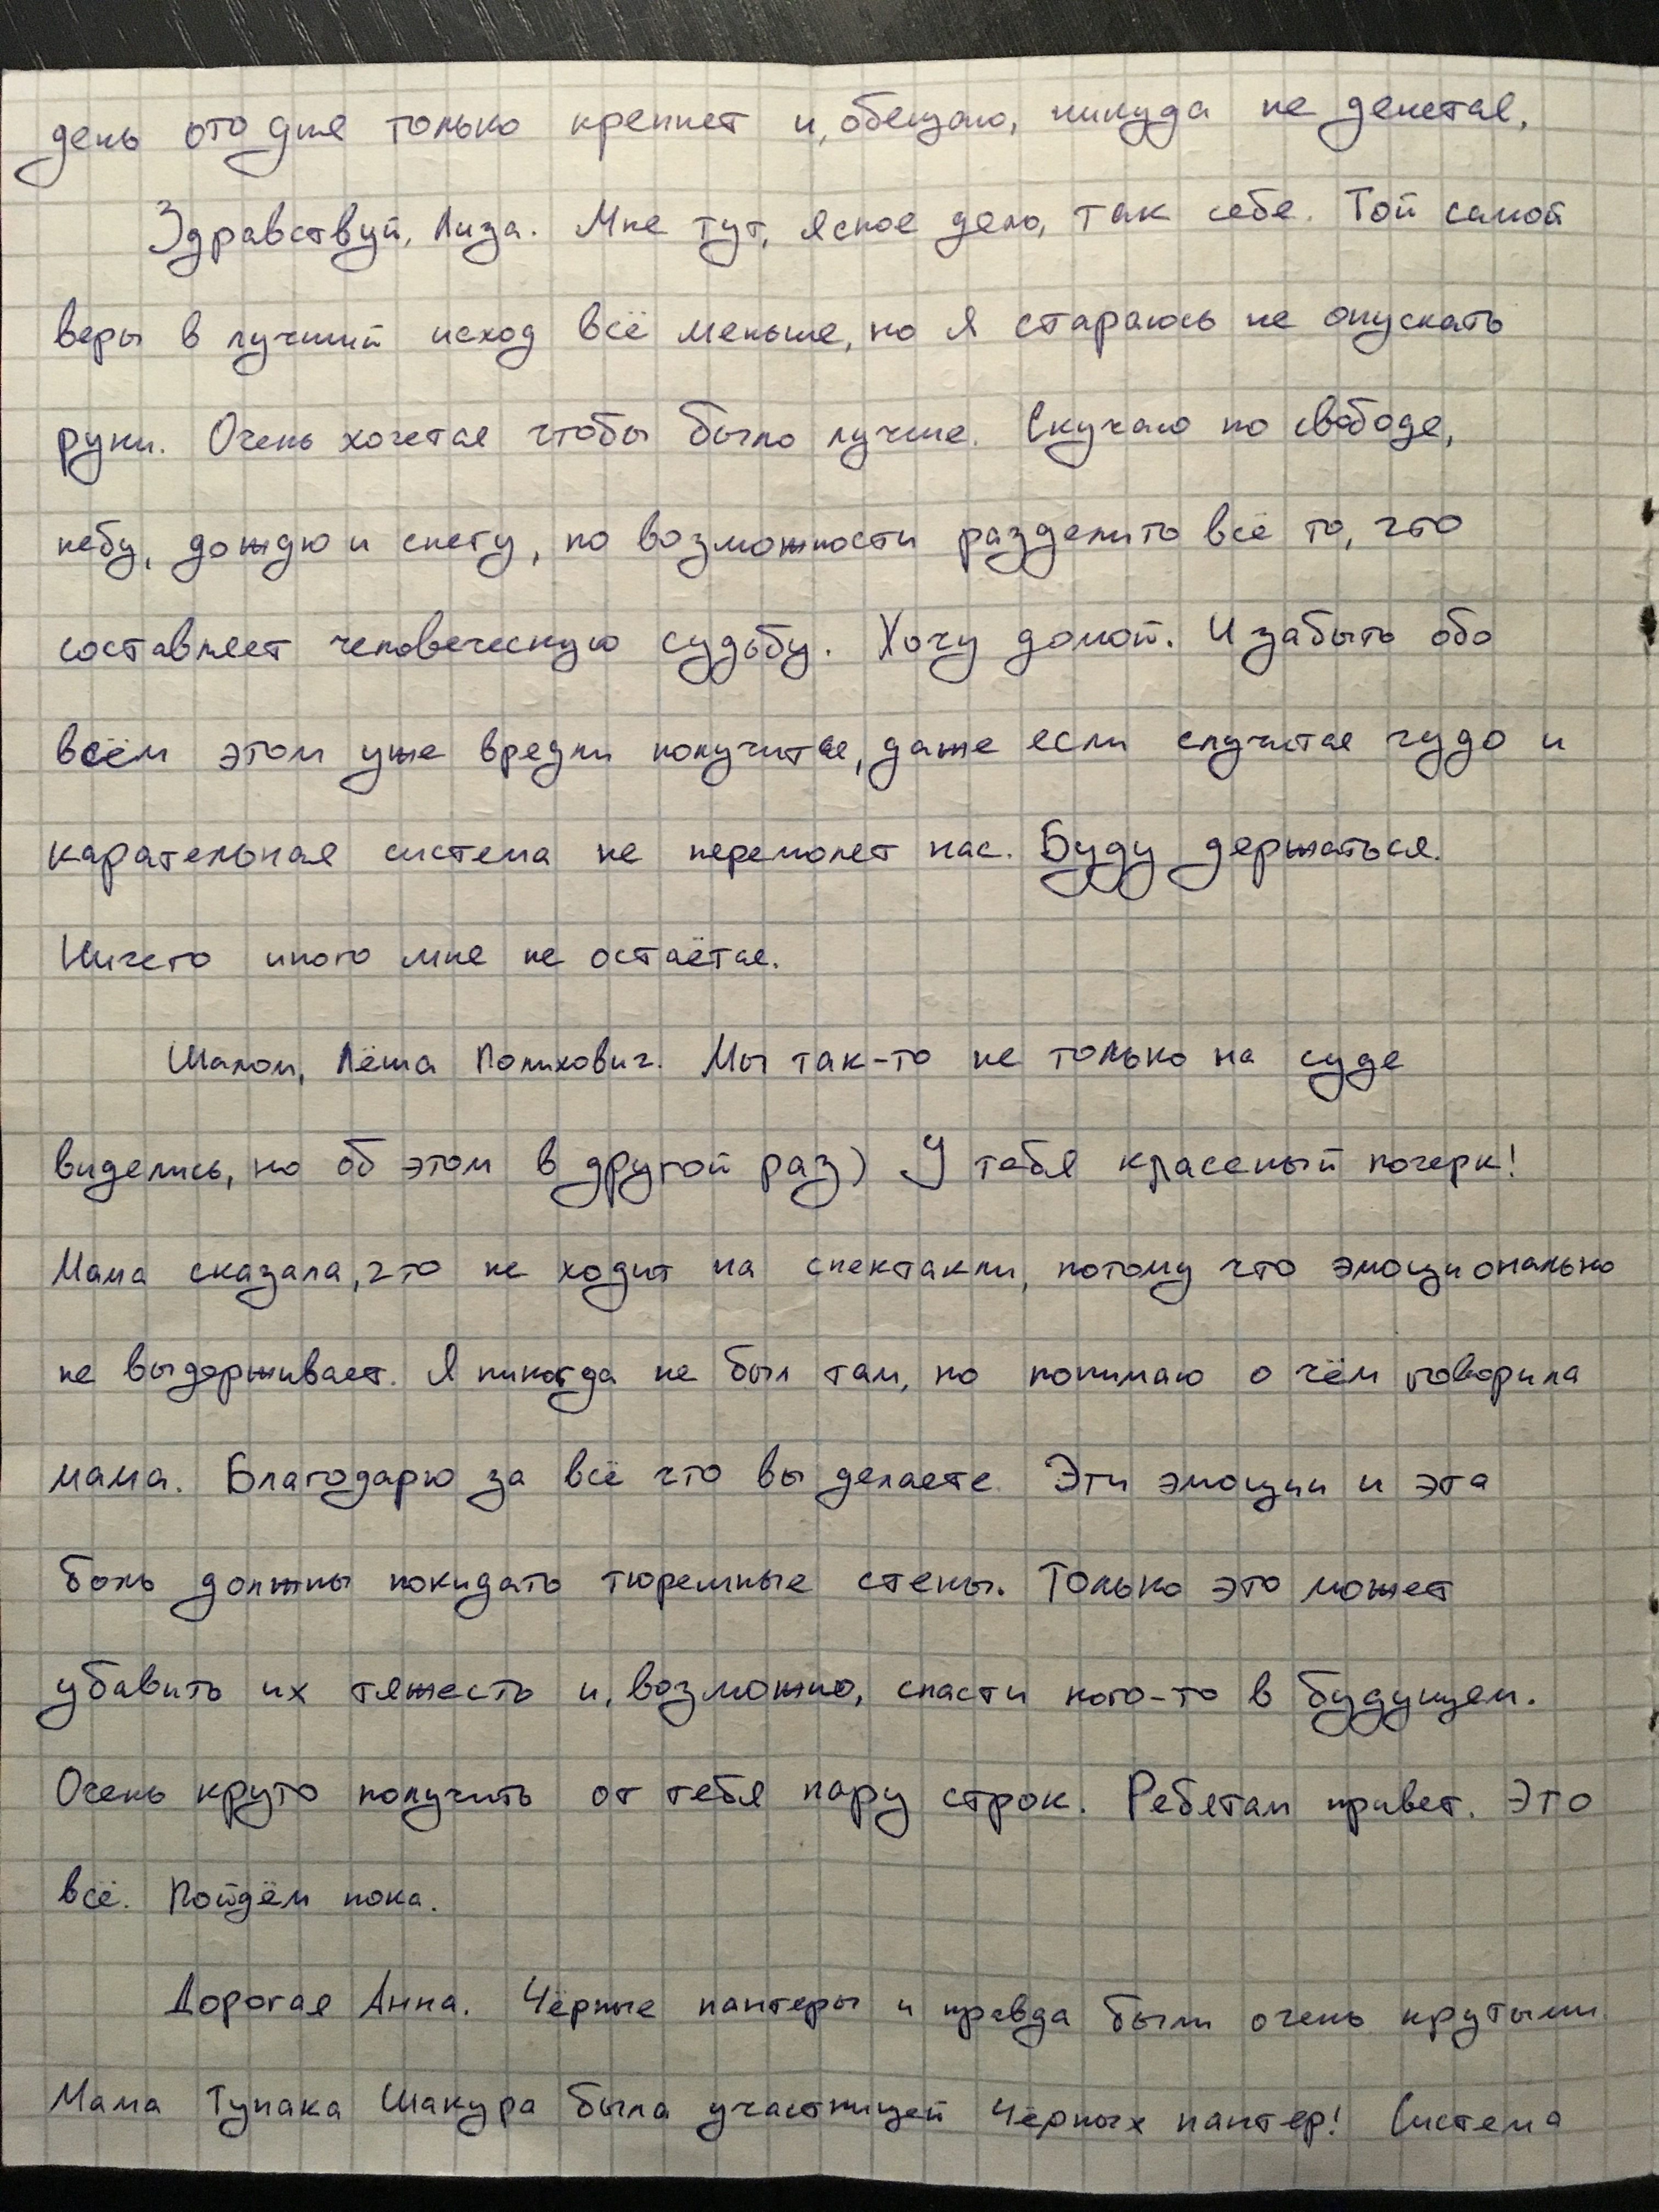 день ото дня только крепнет и, обещаю, никуда не денется.
Здравствуй, Лиза. Мне тут, ясное дело, так себе. Той самой
веры в лучший исход всё меньше, но я стараюсь не опускать
руки. Очень хочется чтобы было лучше. Скучаю по свободе,
небу, дождю и снегу, по возможности разделить всё то, что
составляет человеческую судьбу. Хочу домой. И забыть обо
всём этом уже вредли получится, даже если случится чудо и
карательная система не перемолет нас. Буду держаться.
Ничего иного мне не остаётся.
Шалом, Лёша Полихович. Мы так-то не только на суде
виделись, но об этом в другой раз) У тебя красеный почерк!
Мама сказала, что не ходит на спектакли, потому что эмоционально
не выдерживает. Я никогда не был там, но понимаю о чём говорила
мама. Благодарю за всё что вы делаете. Эти эмоции и эта
боль должны покидать тюремные стены. Только это может
убавить их тяжесть и, возможно, спасти кого-то в будущем.
Очень круто получить от тебя пару строк. Ребятам привет. Это
всё. Пойдём пока.
Дорогая Анна. Чёрные пантеры и правда были очень крутыми.
Мама Тупака Шакура была участницей Чёрных пантер! Система